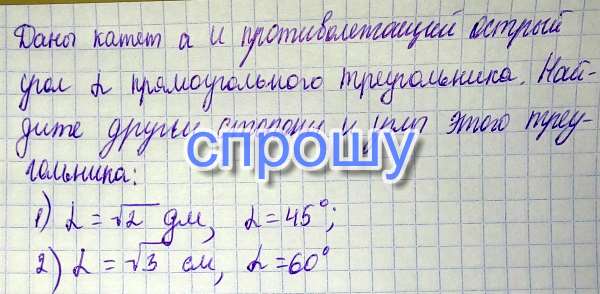 Даны катет a и противолежащий острый
угол α прямоугольного треугольника. Най-
дите другие стороны и углы этого треу-
спрошу
гольника:
1) α = √2 дм, α = 45°;
2) α = √3 см, α = 60°